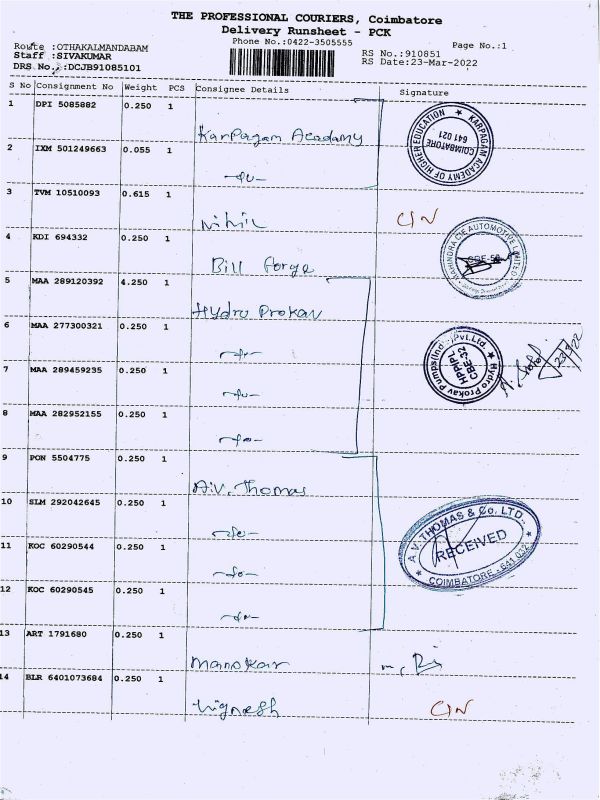 THE PROFESSIONAL COURIERS, Coimbatore
Delivery Runsheet - PCK
Phone No.:0422-3505555
Page No.:1
Route :OTHAKALMANDABAM
RS No.:910851
Staff :SIVAKUMAR
RS Date:23-Mar-2022
DRS No.:DCJB91085101
S No Consignment No Weight PCS Consignee Details Signature
1 DPI 5085882 0.250 1
Karpagam Academy
KARPAGAM ACADEMY OF HIGHER EDUCATION
COIMBATORE
641 021
2 IXM 501249663 0.055 1
3 TVM 10510093 0.615 1
Nikil
4 KDI 694332 0.250 1
Bill forge
MAHINDRA CIE AUTOMOTIVE LIMITED
5 MAA 289120392 4.250 1
Hydro Prokav
6 MAA 277300321 0.250 1
Hydro Prokav Pumps(India)Pvt.Ltd.
HPPIPL
CBE-32
23/3/22
7 MAA 289459235 0.250 1
8 MAA 282952155 0.250 1
9 PON 5504775 0.250 1
A.V. Thomas
10 SLM 292042645 0.250 1
A.V. THOMAS & Co. LTD.,
RECEIVED
COIMBATORE - 641 032
11 KOC 60290544 0.250 1
12 KOC 60290545 0.250 1
13 ART 1791680 0.250 1
Manokar
14 BLR 6401073684 0.250 1
Vignesh